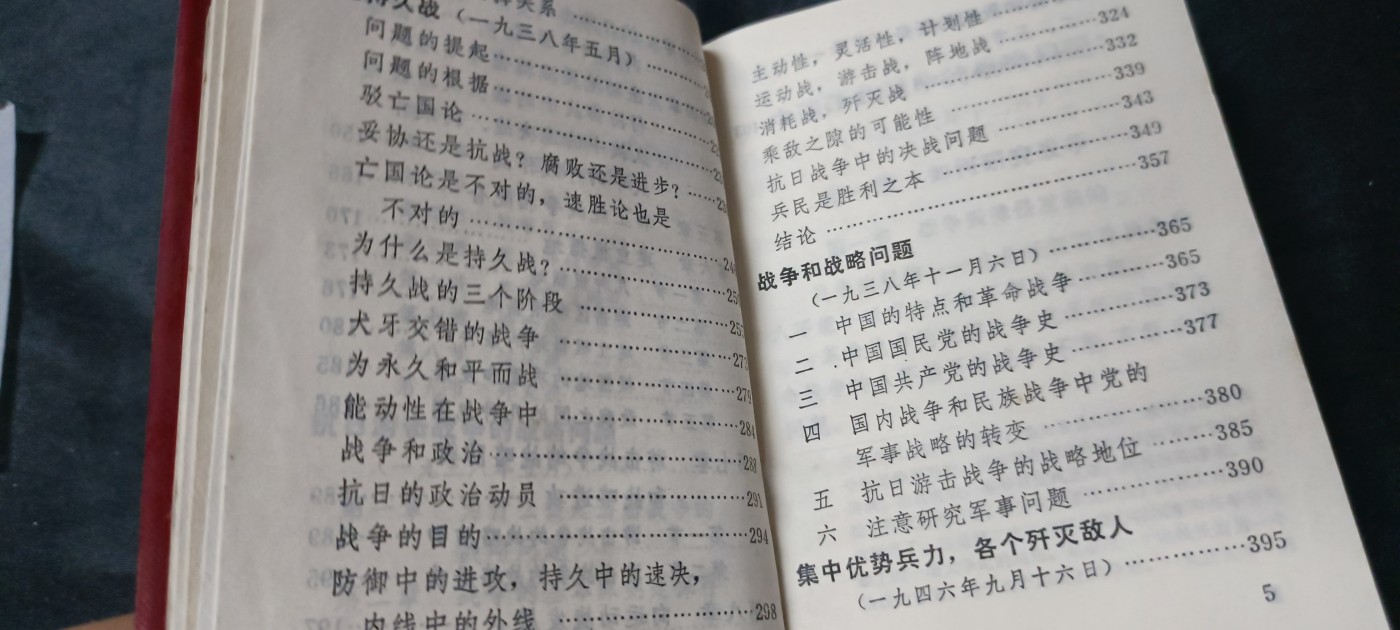 久战（一九三八年五月）
问题的提起
问题的根据
驳亡国论
妥协还是抗战？腐败还是进步？
亡国论是不对的，速胜论也是
不对的
为什么是持久战？
持久战的三个阶段
犬牙交错的战争 273
为永久和平而战 279
能动性在战争中 284
战争和政治 288
抗日的政治动员 291
战争的目的 294
防御中的进攻，持久中的速决，
内线中的外线 298
主动性，灵活性，计划性 324
运动战，游击战，阵地战 332
消耗战，歼灭战 339
乘敌之隙的可能性 343
抗日战争中的决战问题 349
兵民是胜利之本 357
结论
战争和战略问题
（一九三八年十一月六日） 365
一 中国的特点和革命战争 365
二 中国国民党的战争史 373
三 中国共产党的战争史 377
四 国内战争和民族战争中党的
军事战略的转变 380
五 抗日游击战争的战略地位 385
六 注意研究军事问题 390
集中优势兵力，各个歼灭敌人
（一九四六年九月十六日） 395
5